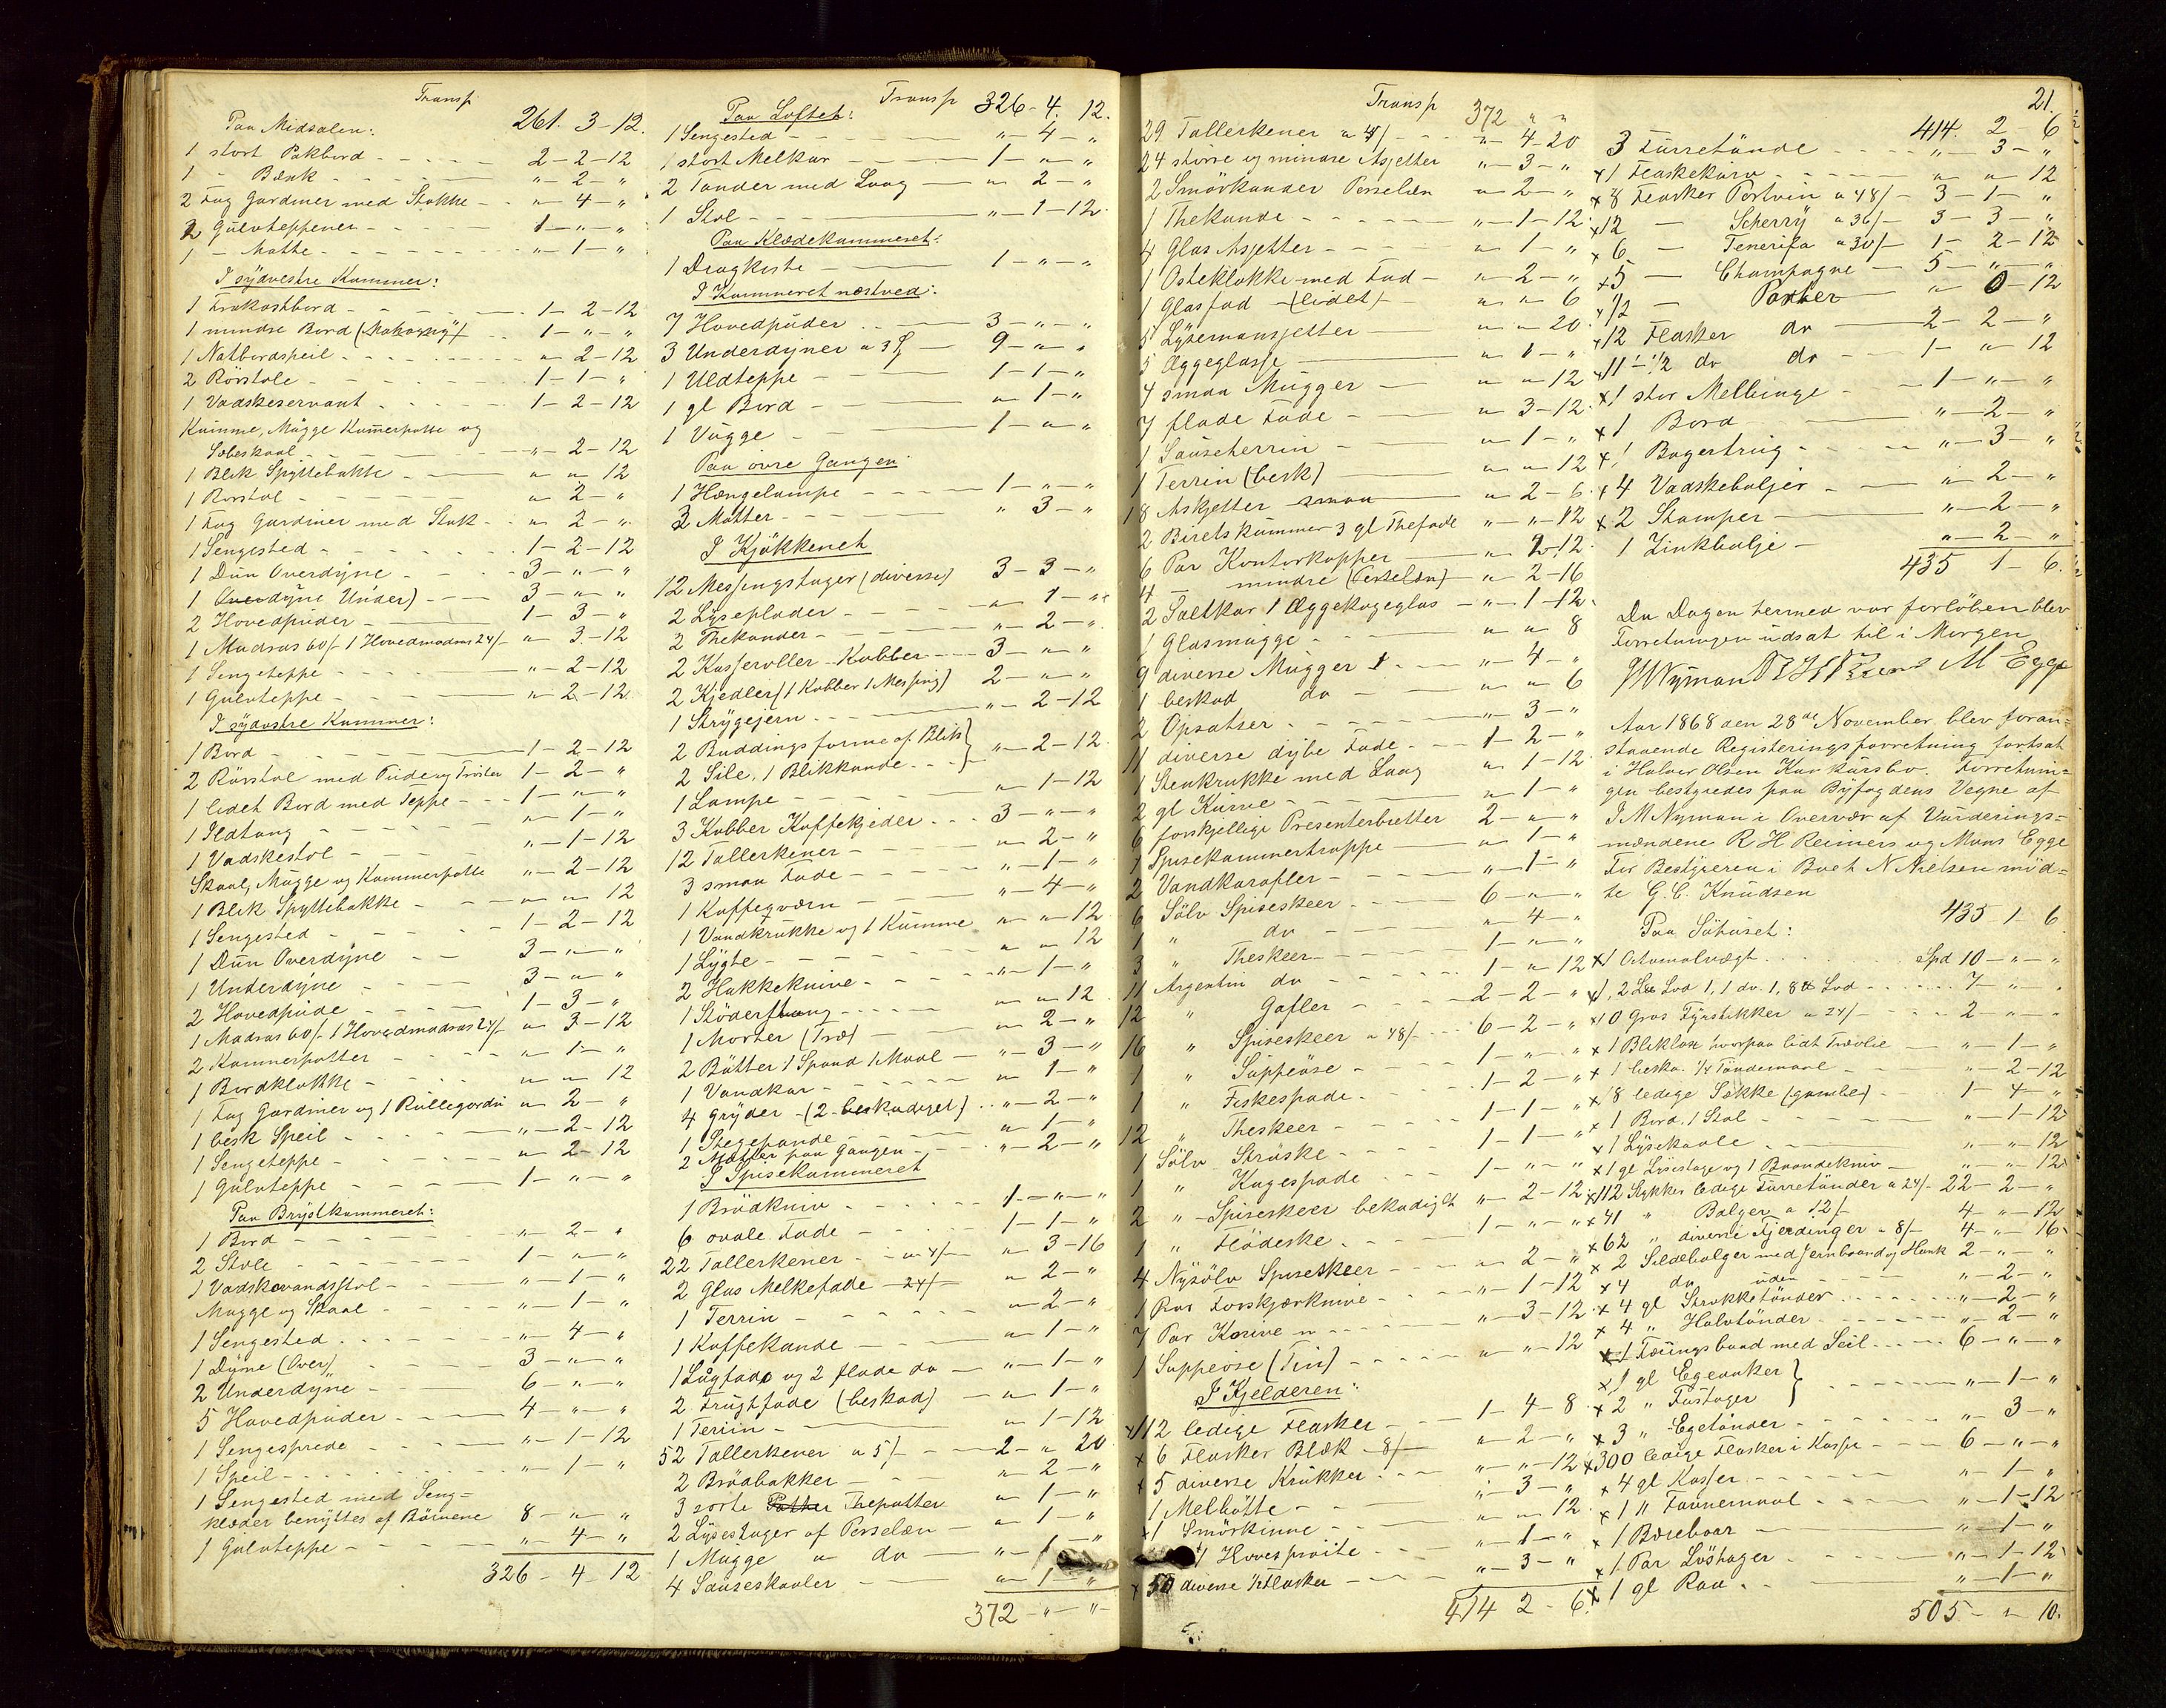 Transp
261. 3-12.
Paa Midsalen:
1 stort Pakbord - - - - 2-2-12
1 - Bænk - - - - - „-2-„
2 Fag Gardiner med Stokke - - „-4-„
2 Gulvteppener - - - - 1-„-„
1 - Matte - - - - - „-1-„
I sydvestre Kammer:
1 Frokostbord - - - - - 1-2-12
1 mindre Bord (Mahogny) - - 1-„-„
1 Natbordspeil - - - - - „-2-12
2 Rørstole - - - - - 1-1-„
1 Vadskeservant - - - - 1-2-12
Kumme, Mugge Kammerpotte og
Sæbeskaal - - - - - „-2-12
1 Blik Spyttebakke - - - - „-„-12
1 Rørstol - - - - - „-2-„
1 Fag Gardiner med Stok - - „-2-„
1 Sengested - - - - - 1-2-12
1 Dun Overdyne - - - - 3-„-„
1 Overdyne Under) - - - 3-„-„
2 Hovedpuder - - - - 1-3-„
1 Madras 60/- 1 Hovedmadras 24/- „-3-12
1 Sengeteppe - - - - - „-2-12
1 Gulvteppe - - - - - „-2-12
I sydostre Kammer:
1 Bord - - - - - 1-2-12
2 Rørstol med Pude og Trøster 1-2-„
1 lidet Bord med Teppe - - - 1-„-„
1 Ildtang - - - - - „-1-„
1 Vadskestol - - - - - „-1-12
Skaal, Mugge og Kammerpotte „-2-12
1 Blik Spyttebakke - - - „-„-12
1 Sengested - - - - - 1-2-12
1 Dun Overdyne - - - 3-„-„
1 Underdyne - - - - 3-„-„
2 Hovedpude - - - - 1-3-„
1 Madras 60/- 1 Hovedmadras 24/- „-3-12
2 Kammerpotter - - - - „-1-„
1 Bordklokke - - - - „-„-12
1 Fag Gardiner og 1 Rullegardin „-2-„
1 besk Speil - - - - „-2-12
1 Sengeteppe - - - - „-2-12
1 Gulvteppe - - - - 1-„-„
Paa Brystkammeret:
1 Bord - - - - - „-2-„
2 Stole - - - - - 1-„-„
1 Vadskevandsstol - - - - „-1-„
Mugge og Skaal - - - - „-1-„
1 Sengested - - - - - „-4-„
1 Dyne (Over) - - - - 3-„-„
2 Underdyne - - - - 6-„-„
5 Hovedpuder - - - - 4-„-„
1 Sengesprede - - - - „-1-12
1 Speil - - - - - „-1-„
1 Sengested med Seng=
klæder benyttes af Børnene 8-„-„
1 Gulvteppe - - - - „-4-„
326-4-12
Transp 326-4. 12.
Paa Loftet:
1 Sengested - - - - „-4-„
1 stort Melkar - - - - 1-„-„
2 Tønder med Laag - - „-2-„
1 Stol - - - - - „-1-12
Paa Klædekammeret:
1 Dragkiste - - - - 1-„-„
I Kammeret næstved:
7 Hovedpuder - - - 3-„-„
3 Underdyner a 3 - - 9-„-„
1 Uldteppe - - - - 1-1-„
1 gl Bord - - - - „-1-„
1 Vugge - - - - 1-„-„
Paa øvre Gangen
1 Hængelampe - - - 1-„-„
3 Matter - - - - „ 3-„
I Kjøkkenet
12 Messingstager (diverse) 3-3-„
2 Lyseplader - - - - „-1-„
2 Thekander - - - - „-2-„
2 Kasseroller Kobber - - 3-„-„
2 Kjedler (1 Kobber 1 Messing) 2-„-„
1 Strygejern - - - - „-2-12
2 Buddingsforme af Blik
2 Sile, 1 Blikkande - - „-2-12
1 Lampe - - - - „-1-12
3 Kobber Kaffekjedler - - - 3-„-„
12 Tallerkener - - - - „-2-„
3 smaa Fade - - - - „-1-„
1 Kaffeqværn - - - - „-4-„
1 Vandkrukke og 1 Kumme „-„-12
1 Lygte - - - - - „-„-12
2 Hakkeknive - - - - „-1-„
1 Støderstang - - - - „-„-12
1 Morter (Træ) - - - - „-2-„
2 Bøtter 1 Spand 1 Maal - „-3-„
1 Vandkar - - - - „-1-„
4 Gryder - (2 beskadiget) - - „-2-„
1 Stegepande - - - - „-1-„
2 Matter paa Gangen - - - „-2-„
I Spisekammeret
1 Brødkniv - - - - 1-„-„
6 ovale Fade - - - 1-1-„
22 Tallerkener - - a 4/- „ 3-16
2 Glas Melkefade - 24/- „-2-„
1 Terrin - - - - „-2-„
1 Kaffekande - - - - „-1-„
1 Lågfad og 2 flade do - „-1-„
2 Frugtfade (beskad) - „-1-„
1 Teriin - - - - „-1-12
52 Tallerkener a 5/- - - 2-„ 20
2 Brødbakker - - - - „-2-„
3 sorte Thepotter „-1-„
2 Lysestager af Porselæn - „-1-„
1 Mugge „ do - „-1-„
4 Sauseskaaler - - „-1-„
372-„-„
Transp 372 „ „
29 Tallerkener a 4/- - - „-4-20
24 større og mindre Asjetter „-3-„
2 Smørkander Porselæn „-2-„
1 Thekande - - - - „-1-12
4 Glas Asjetter - - - „-1-„
1 Osteklokke med Fad - „-2-„
1 Glasfad - (lidet) - „-„ 6
5 Lysemansjetter - „-„-20
5 Æggeglasse - „-1-„
4 smaa Mugger - „-„-12
7 flade Fade - „-3-12
1 Sauseterrin - „-1-„
1 Terrin (besk) - „-„-12
18 Askjetter smaa „-2-6
2 Biretskummer 3 gl Thefade „-„-12
6 Par Kontorkopper - „ 2-12
4 - mindre (Porselæn) - „-2-16
2 Saltkar 1 Æggekogeglas - „-1-12
1 Glasmugge - „-„ 8
9 diverse Mugger - „-4-„
1 beskad do - „-„ 6
2 Opsatser - „-3-„
11 diverse dybe Fade - 1-2-„
1 Stenkrukke med Laag „-1-12
2 gl Kurve - „-1-„
6 forskjellige Presenterbretter 2-„-„
1 Spisekammertrappe - „-1-„
2 Vandkarafler - „-1-„
6 Sølv Spiseskeer - 6-„-„
1 „ do - „-4-„
3 „ Theskeer - 1-„-„
11 Argentin do - 1-„-12
12 „ Gafler - 2-2-„
16 „ Spiseskeer a 48/- 6-2-„
1 „ Suppeøse - 1-„-„
1 „ Fiskespade - 1-2-„
12 „ Theskeer - 1-1-„
1 Sølv Strøske - 1-1-„
1 „ Kagespade - 1-„-„
2 „ Spiseskeer bekadigt „-2-12
1 „ Flødeske - 1-„-„
4 Nysølv Spiseskeer - „ 2-„
1 Par Forskjærknive - „-1-12
7 Par Knive - „-3-12
1 Suppeøse (Tin) - „-„-12
I Kjelderen:
x 112 ledige Flasker - 1-4-8
x 6 Flasker Blæk - 8/- „-2-„
x 5 diverse Krukker - „-„-12
1 Melbøtte - „-3-„
x 1 Smørkinne - „-„ 12
1 Havesprøite - „-1-„
x 50 diverse 1/2 Flasker - „-3-„
414 2-6
21.
414. 2-6
3 Turretønde - „-3-„
x 1 Flaskekurv - „-„ 12
x 8 Flasker Portvin a 48/- 3-1-„
x 12 - Scherry a 36/- 3-3-„
x 6 - Tenerifa a 30/- 1-2-12
x 5 - Champagne - 5-„-„
x 1/2 - Porter - „-0-12
x 12 Flasker do - 2-2-„
x 11 - 1/2 do do - 1-„-12
x 1 stor Melbinge - 1-„-„
x 1 Bord - „-2-„
x 1 Bagertrug - „-3-„
x 4 Vadskebaljer - „-2-„
x 2 Stamper - „-2-„
1 Zinkbalje - „-2-„
435 1-6.
Da Dagen hermed var forløben blev
Forretningen udsat til i Morgen
JMNyman RHReimers M Egge
Aar 1868 den 28de November blev foran=
staaende Registeringsforretning fortsat
i Halvor Olsen Konkursbo. Forretnin=
gen bestyredes paa Byfogdens Vegne af
J. M Nyman i Overvær af Vurderings=
mændene R H Reimers og Mons Egge
For Bestyreren i Boet N Nielsen mød=
te G. C. Knudsen
435-1-6
Paa Søhuset:
x 1 Spd 10-„-„
x 1, 2 Lod 1, 1 do. 1, 8 Lod - 7-„-„
x 10 Gros Fyrstikker a 24/- - 2-„-„
x 1 hvorpaa lidt - „-1-„
x 1 beska. 1/4 Tøndemaal - „-2-12
x 18 ledige Sække (gamle) - 1-4-„
x 1 Bord, 1 Stol - „-1-12
x 1 Lysekaale - „-„-12
x 1 gl Lysestage og 1 Baandekniv - „-„-12
x 112 Stykker ledige Turretønder a 24/- 22-2-„
x 41 „ Balger a 12/- 4-„-12
x 62 „ diverse Fjerdinger a 8/- 4-„ 16
x 2 Sildebalger med Jernbaand og Hank 2-„-„
x 4 do uden - „-2-„
x 4 gl Strokketønder - „-2-„
x 4 „ Halvtønder - „-2-„
x 1 Færingsbaad med Seil - 6-„-„
x 1 gl Egeanker
x 2 „ Fustager - „-1-„
x 3 „ Egetønder - „-3-„
x 300 ledige Flasker i Kasse - 6-„-„
x 4 gl Kasser - „-1-„
x 1 „ Favnemaal - „-1-12
x 1 Bærebaar - „-1-„
x 1 Par Løshager - „-1-12
x 1 gl Raa - „-1-„
505-„-10.